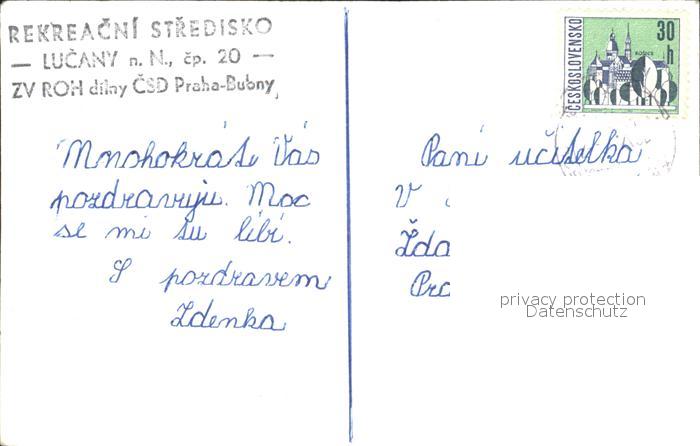 REKREAČNÍ STŘEDISKO
— LUČANY n. N., čp. 20 —
ZV ROH dílny ČSD Praha-Bubny
Mnohokráte Vás
pozdravuju. Moc
se mi tu líbí.
S pozdravem
Zdenka
ČESKOSLOVENSKO
30 h
KOŠICE
Paní učitelka
V
Žda
Pro
privacy protection
Datenschutz